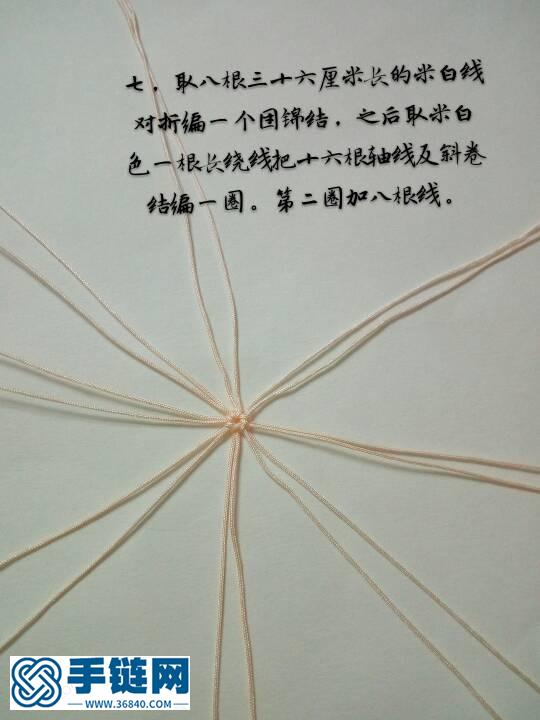 七，取八根三十六厘米长的米白线
对折编一个团锦结，之后取米白
色一根长绕线把十六根轴线反斜卷
结编一圈。第二圈加八根线。
手链网
WWW.36840.COM